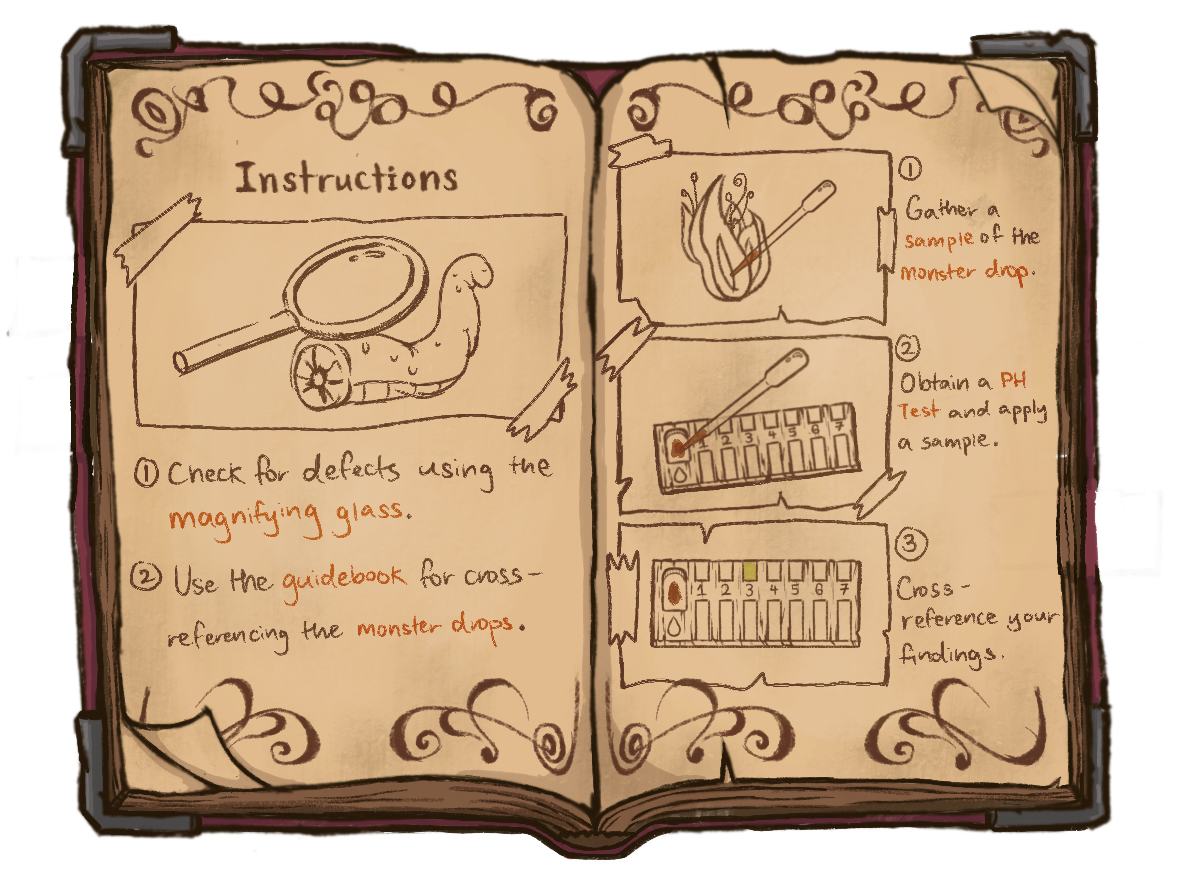 Instructions
① Check for defects using the
magnifying glass.
② Use the guidebook for cross-
referencing the monster drops.
①
Gather a
sample of the
monster drop.
②
Obtain a PH
Test and apply
a sample.
1 2 3 4 5 6 7
③
Cross-
reference your
findings.
1 2 3 4 5 6 7